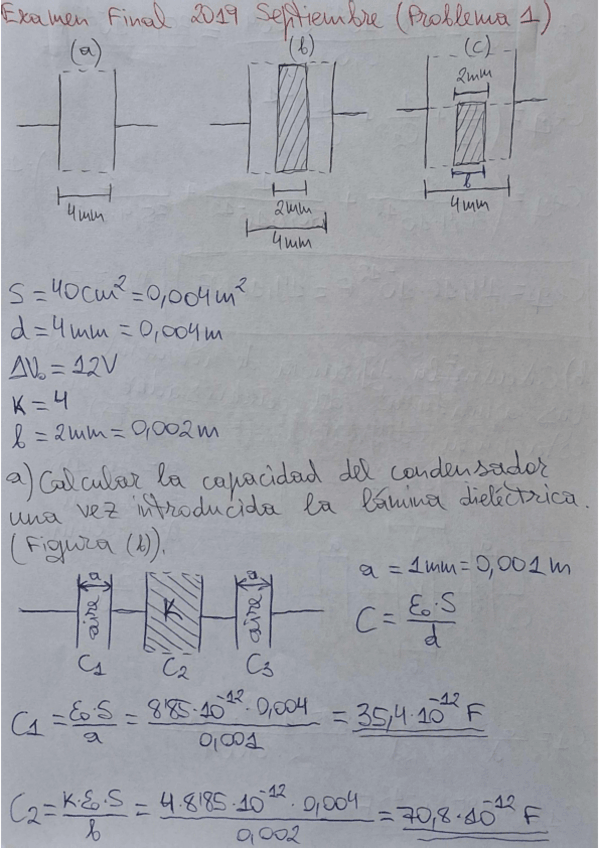 Examen Final 2019 Septiembre (Problema 1)
(a) (b) (c)
2mm
b
4mm 2mm 4mm
4mm
S = 40cm² = 0,004m²
d = 4mm = 0,004m
ΔV₀ = 12V
K = 4
b = 2mm = 0,002m
a) Calcular la capacidad del condensador
una vez introducida la lámina dieléctrica.
(Figura (b)).
a = 1mm = 0,001m
a K a
aire aire
C = ε₀·S / d
C₁ C₂ C₃
C₁ = ε₀·S / a = 8'85·10⁻¹² · 0,004 / 0,001 = 35,4·10⁻¹² F
C₂ = K·ε₀·S / b = 4·8'85·10⁻¹² · 0,004 / 0,002 = 70,8·10⁻¹² F